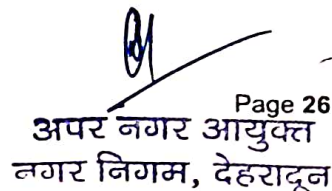 Page 26
अपर नगर आयुक्त
नगर निगम, देहरादून